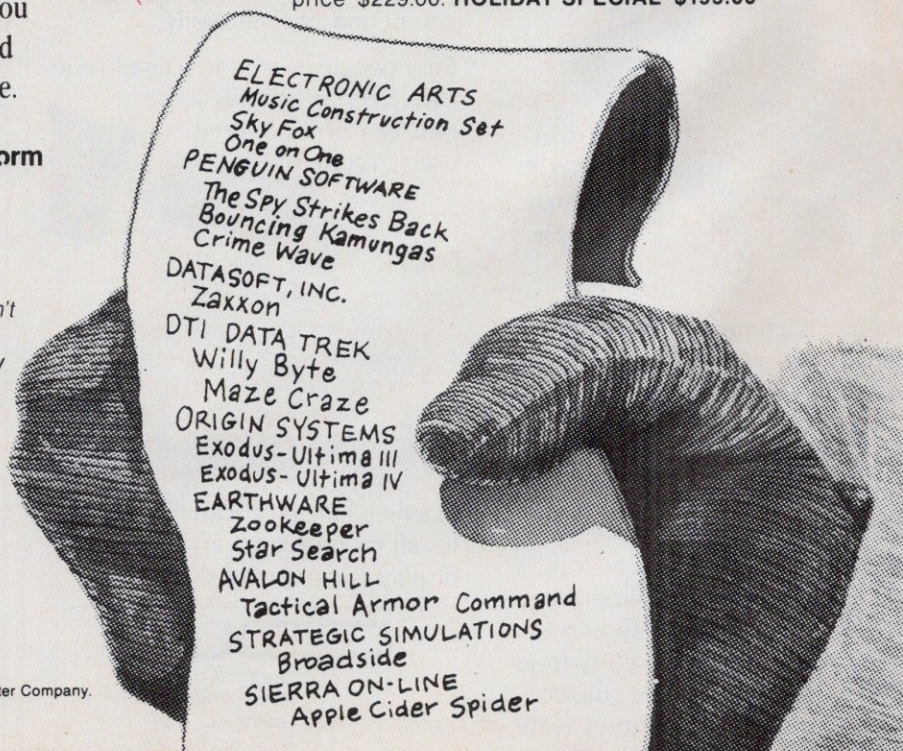 ou
price $229.00. HOLIDAY SPECIAL $199.00
d
e.
orm
n't
y
ter Company.
ELECTRONIC ARTS
Music Construction Set
Sky Fox
One on One
PENGUIN SOFTWARE
The Spy Strikes Back
Bouncing Kamungas
Crime Wave
DATASOFT, INC.
Zaxxon
DTI DATA TREK
Willy Byte
Maze Craze
ORIGIN SYSTEMS
Exodus-Ultima III
Exodus-Ultima IV
EARTHWARE
Zookeeper
Star Search
AVALON HILL
Tactical Armor Command
STRATEGIC SIMULATIONS
Broadside
SIERRA ON-LINE
Apple Cider Spider